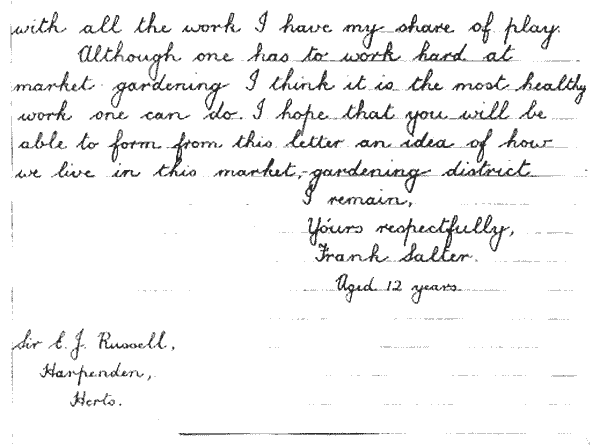 with all the work I have my share of play.
Although one has to work hard at
market gardening I think it is the most healthy
work one can do. I hope that you will be
able to form from this letter an idea of how
we live in this market-gardening district
I remain,
Yours respectfully,
Frank Salter.
Aged 12 years
Sir E. J. Russell,
Harpenden,
Herts.